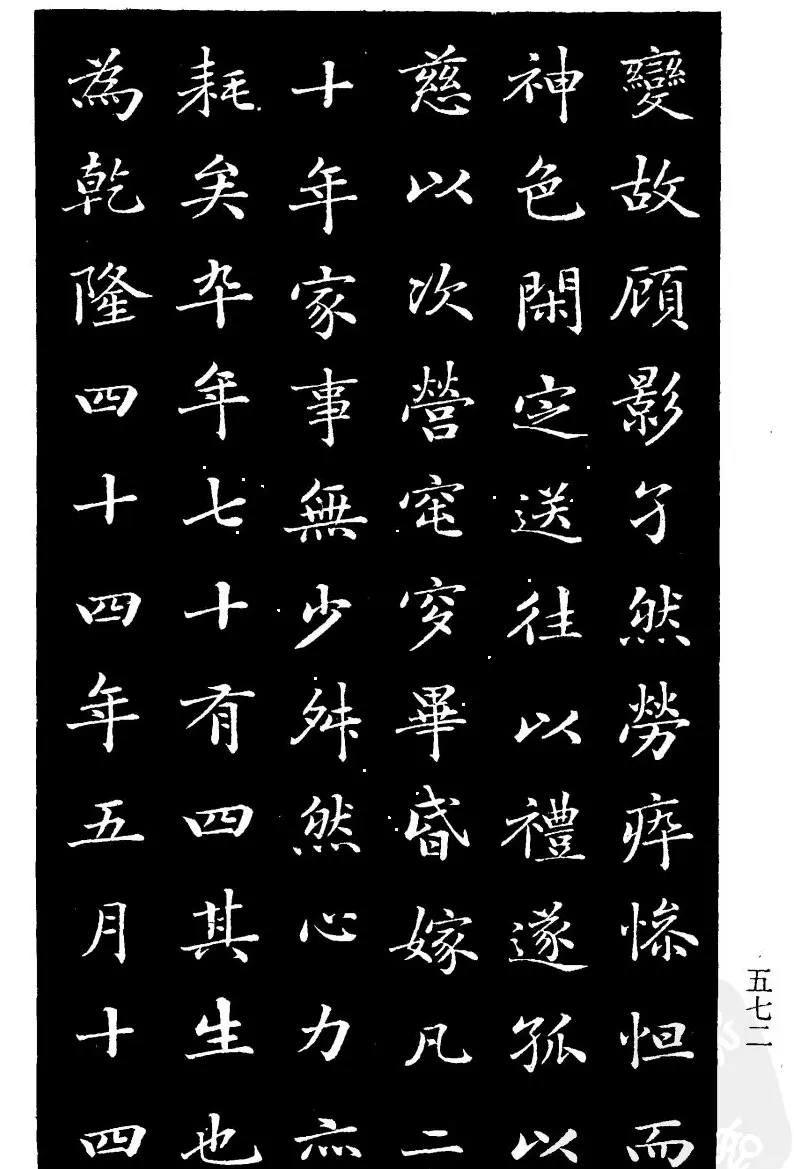 變故顧影孑然勞瘁慘怛而
神色閑定送往以禮遂孤以
慈以次營窀穸畢昏嫁凡二
十年家事無少舛然心力亦
耗矣卒年七十有四其生也
為乾隆四十四年五月十四
五七二